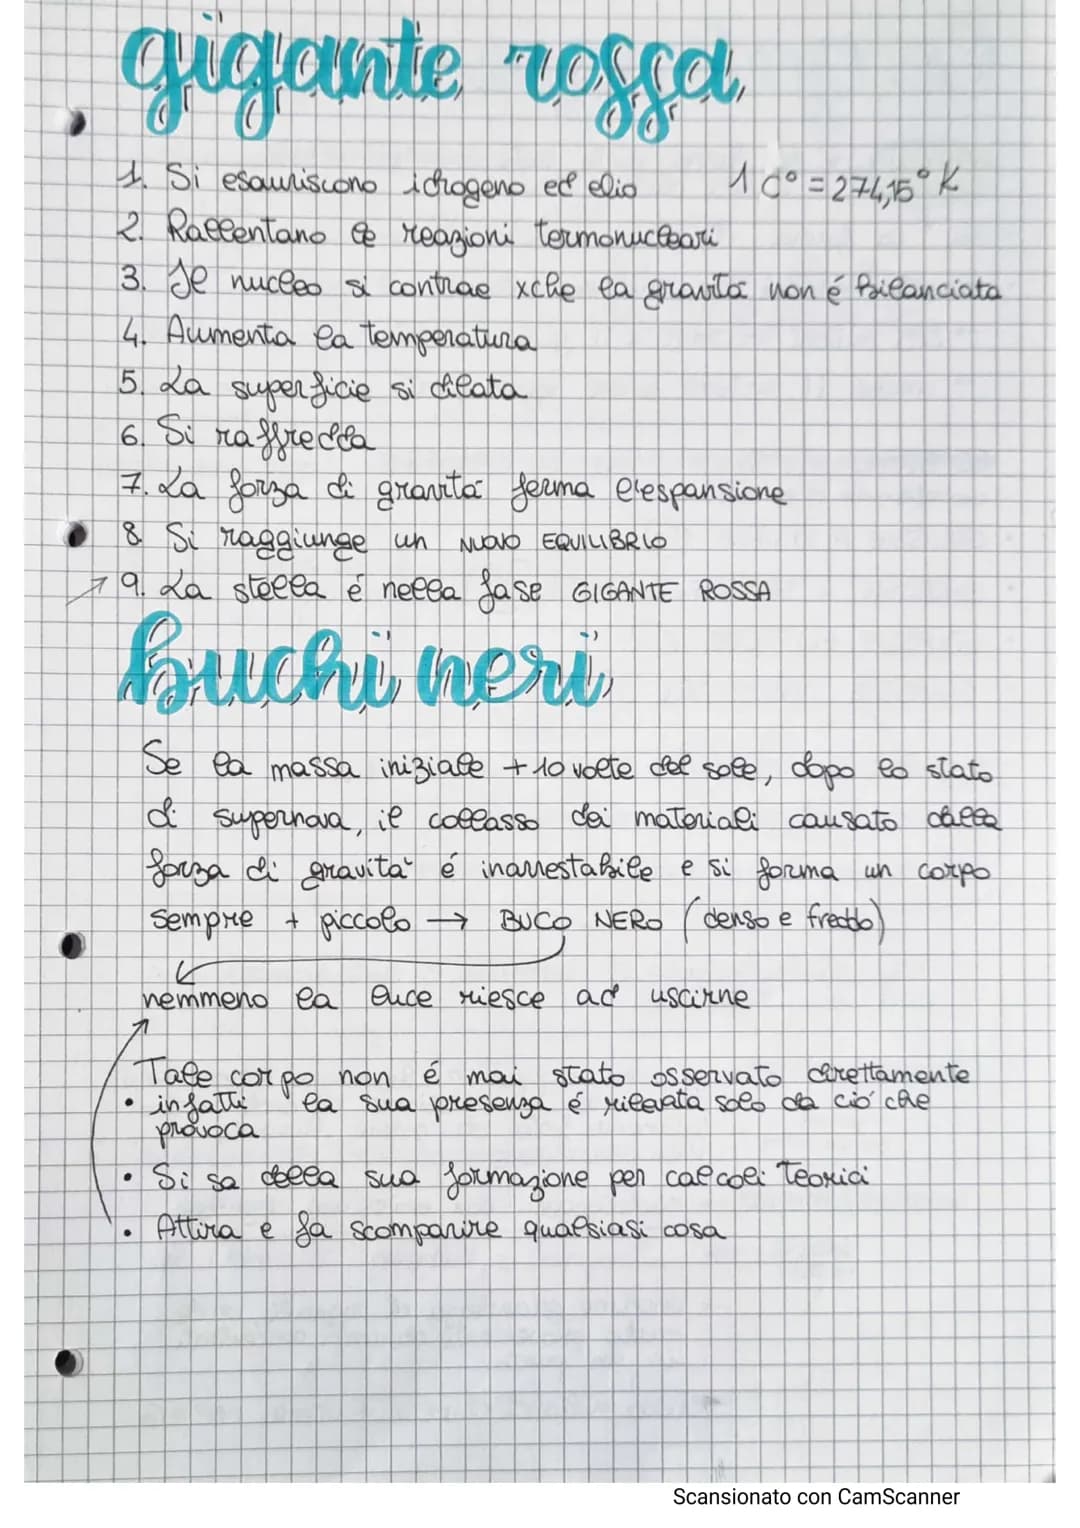 gigante rossa
1. Si esauriscono idrogeno ed elio 1 C° = 274,15° K
2. Rallentano le reazioni termonucleari
3. Il nucleo si contrae xche la gravità non é bilanciata
4. Aumenta la temperatura
5. La superficie si dilata
6. Si raffredda
7. La forza di gravità ferma l'espansione
8 Si raggiunge un NUOVO EQUILIBRIO
9. La stella é nella fase GIGANTE ROSSA
buchi neri
Se la massa iniziale + 10 volte del sole, dopo lo stato
di supernova, il collasso dei materiali causato dalla
forza di gravità é inarrestabile e si forma un corpo
sempre + piccolo → BUCO NERO (denso e freddo)
nemmeno la luce riesce ad uscirne
Tale corpo non é mai stato osservato direttamente
• infatti la sua presenza é rilevata solo da ciò che
provoca
• Si sa della sua formazione per calcoli teorici
• Attira e fa scomparire qualsiasi cosa
Scansionato con CamScanner